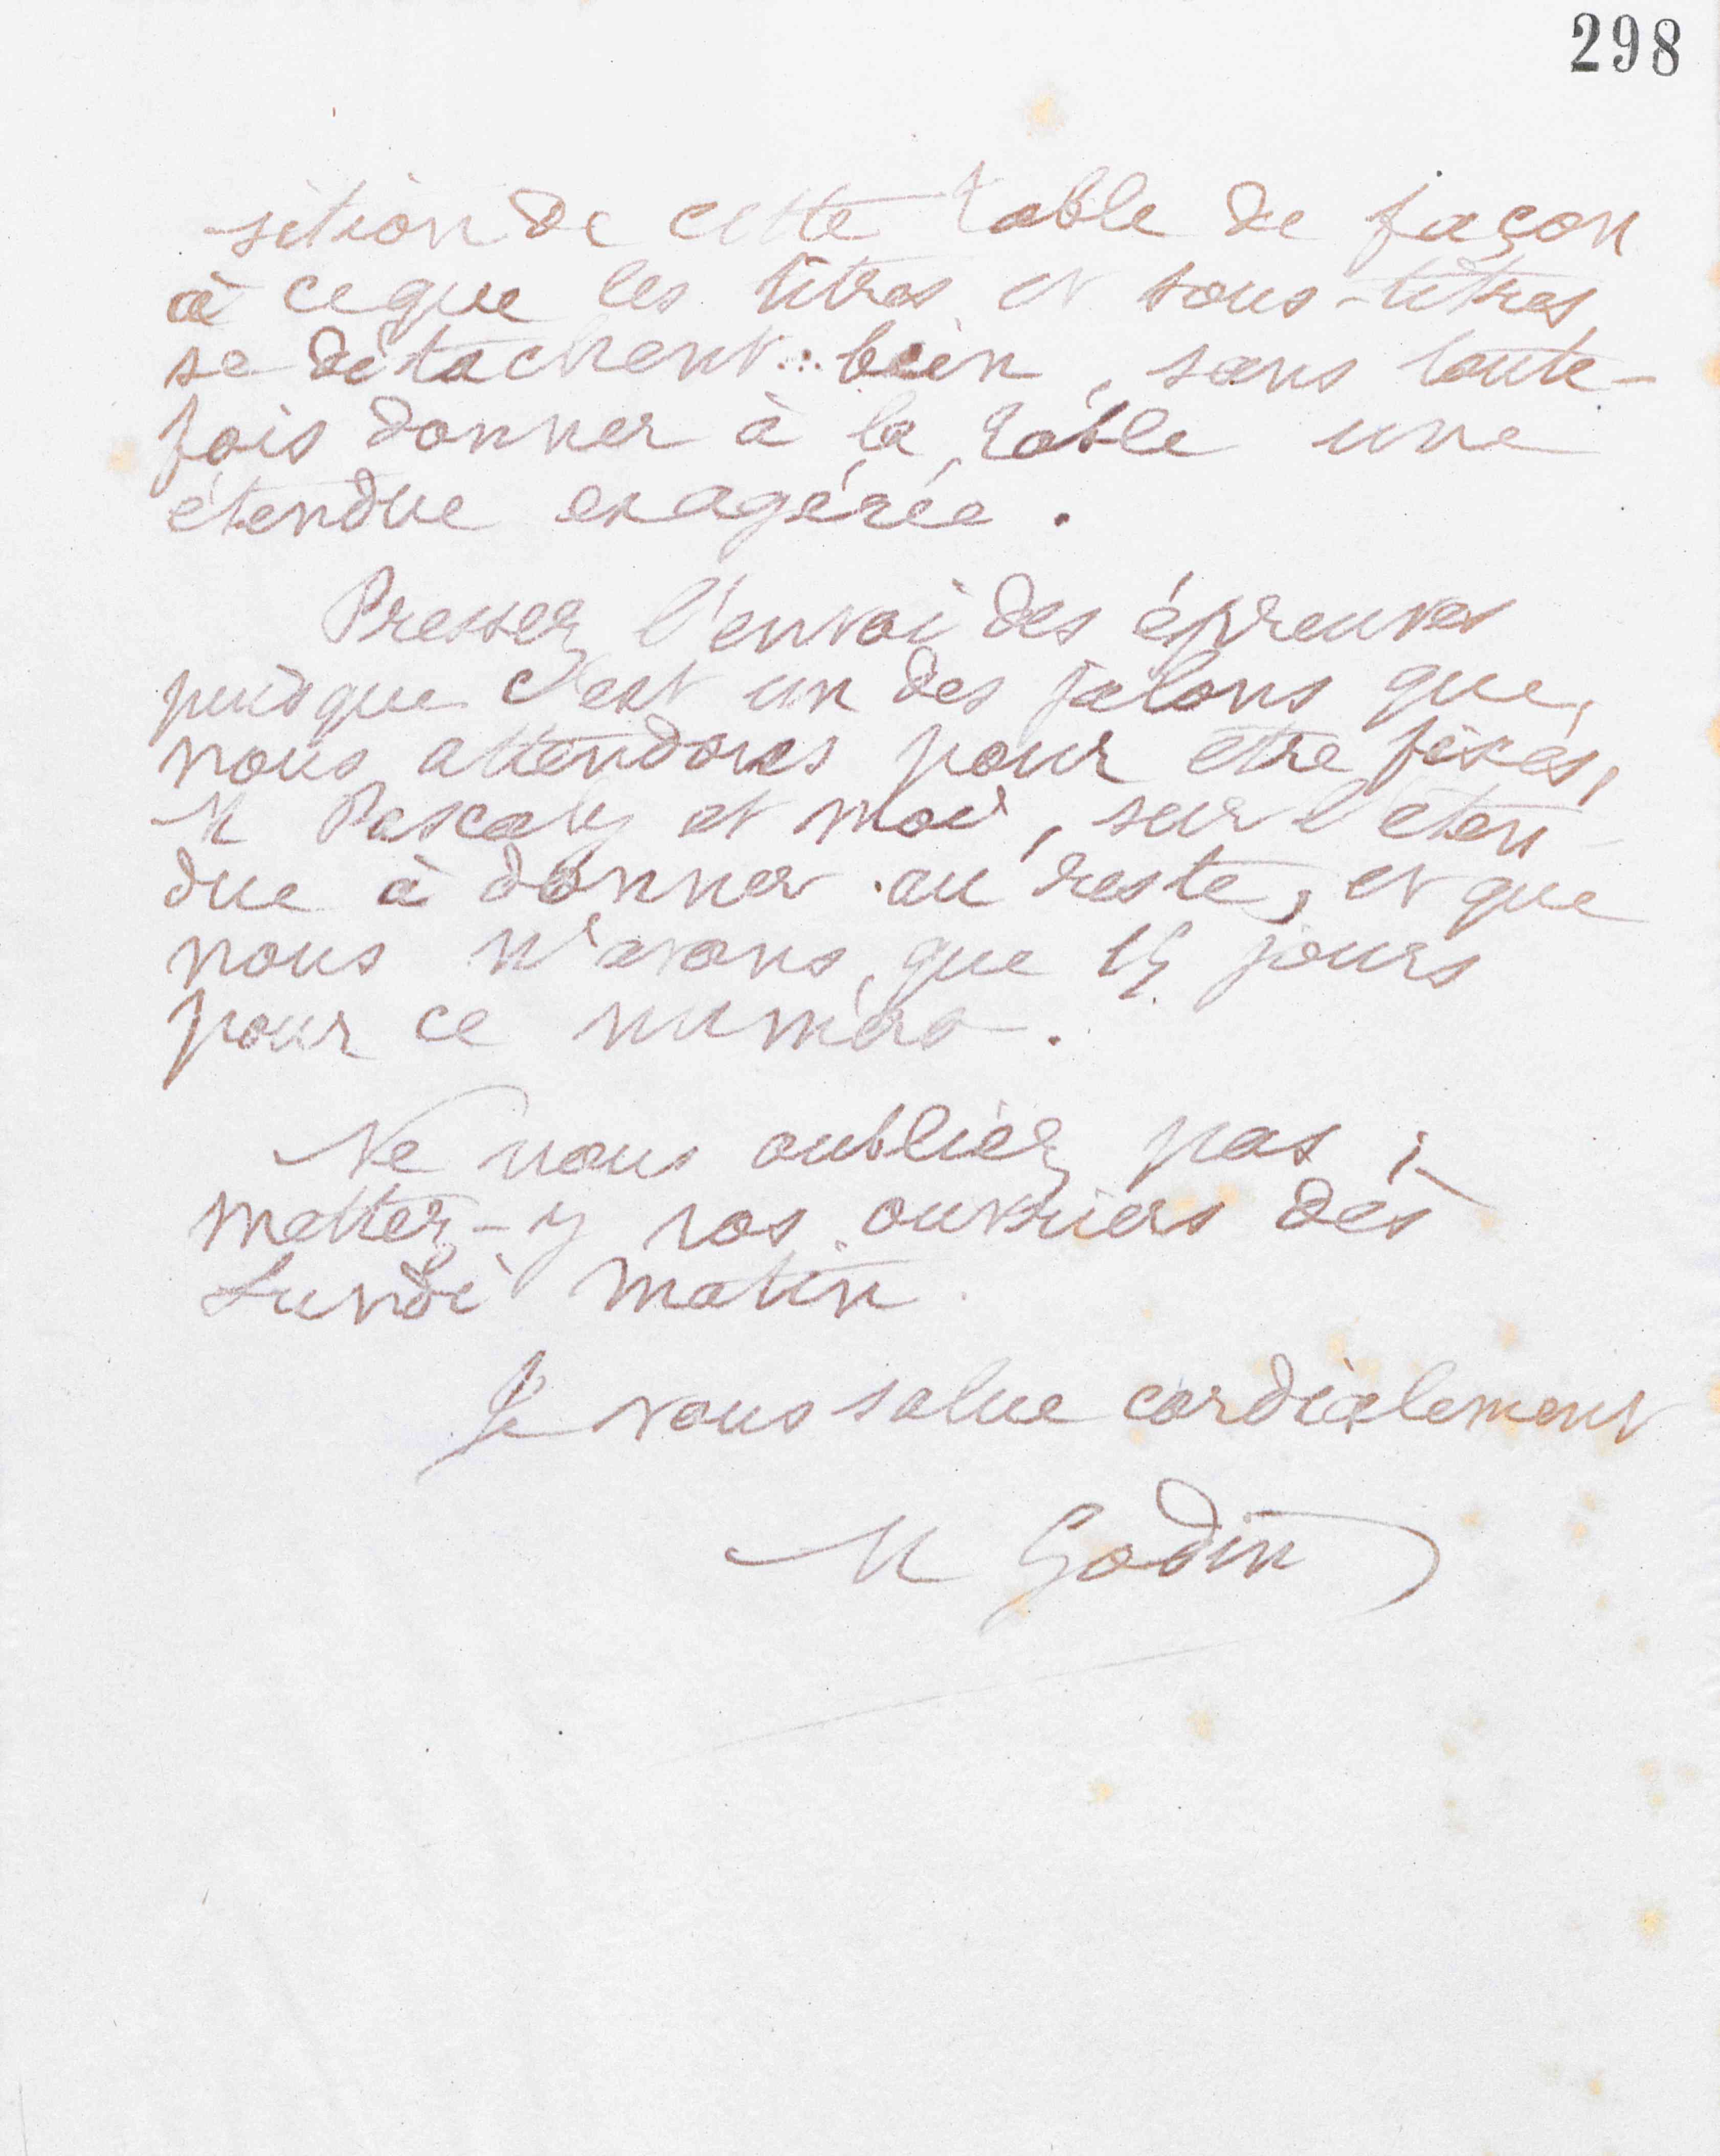 298
sition de cette table de façon
à ce que les titres et sous-titres
se détachent bien, sans toute-
fois donner à la table une
étendue exagérée.
Pressez l'envoi des épreuves
puisque c'est un des jalons que
nous attendons pour être fixés,
M Pascaly et moi, sur l'éten-
due à donner au reste, et que
nous n'avons que 15 jours
pour ce numéro.
Ne nous oubliez pas ;
mettez-y vos ouvriers dès
Lundi matin.
Je vous salue cordialement
M Godin